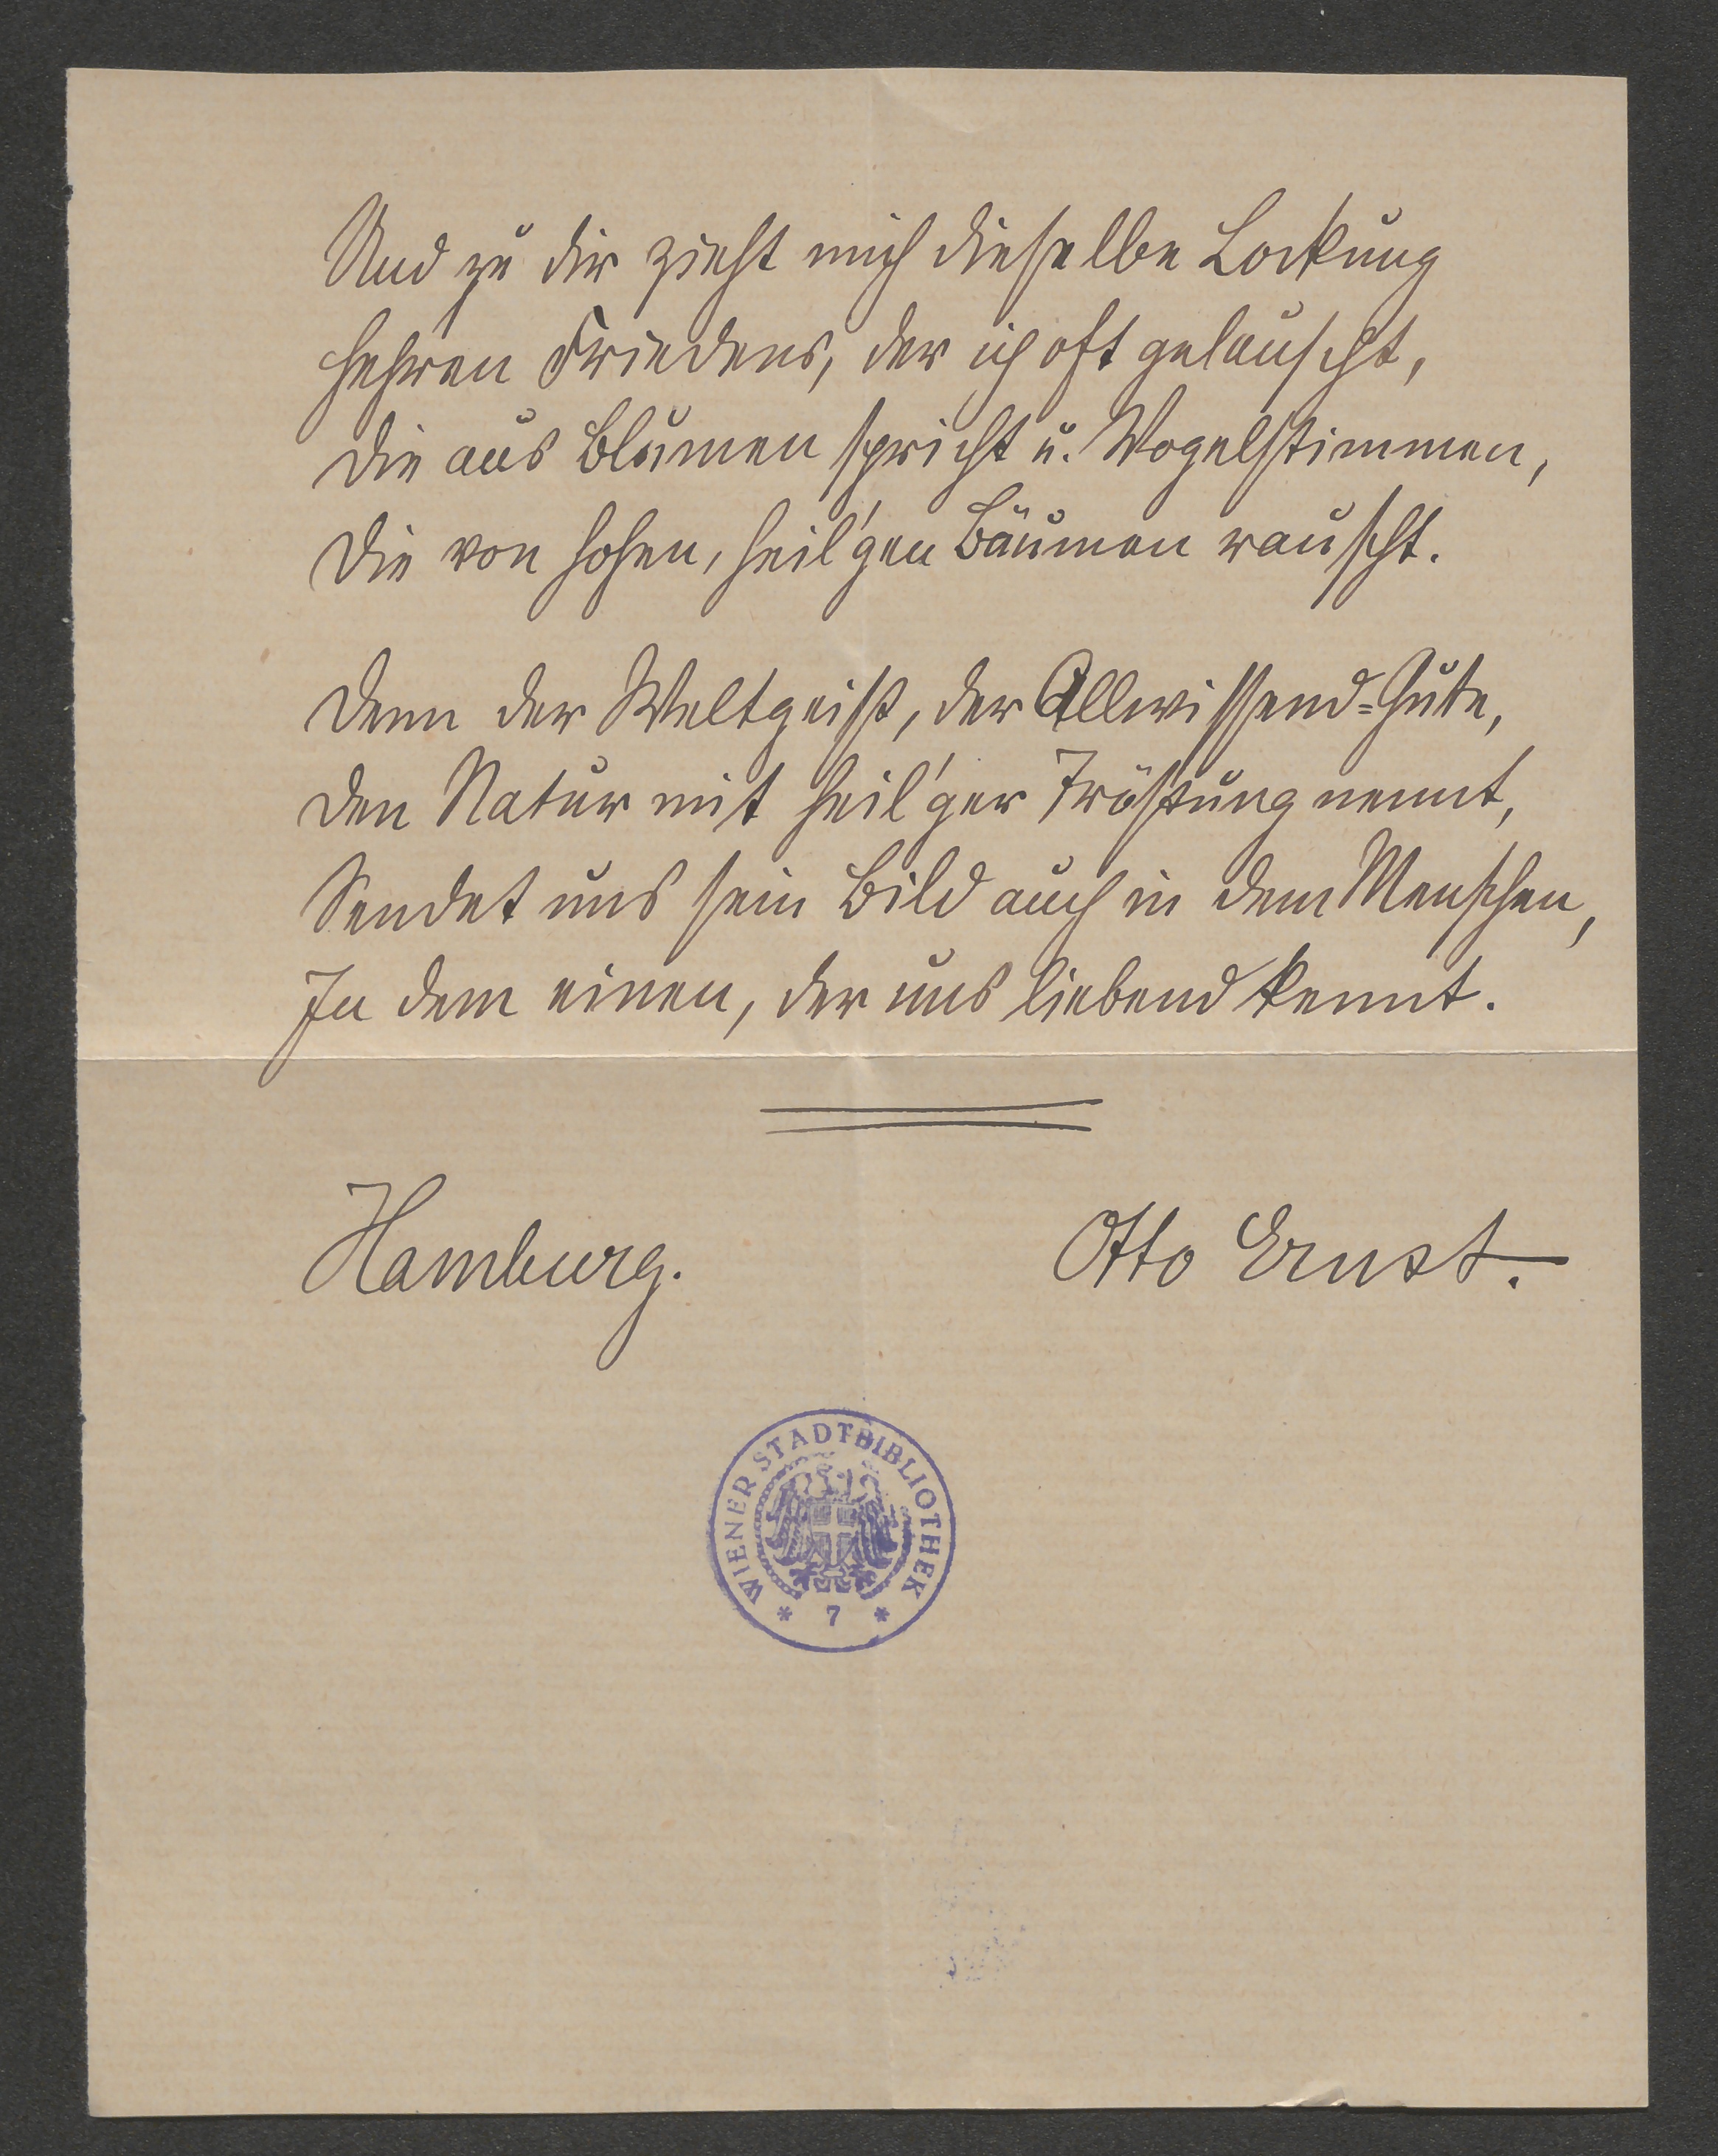 Und zu dir zieht mich dieselbe Lockung
Hehren Friedens, der ich oft gelauscht,
Die aus Blumen spricht u. Vogelstimmen,
Die von hohen, heil'gen Bäumen rauscht.
Denn der Weltgeist, der Allwissend-Gute,
Den Natur mit heil'ger Tröstung nennt,
Sendet uns sein Bild auch in dem Menschen,
In dem einen, der uns liebend kennt.
Hamburg. Otto Ernst.
WIENER STADTBIBLIOTHEK
* 7 *